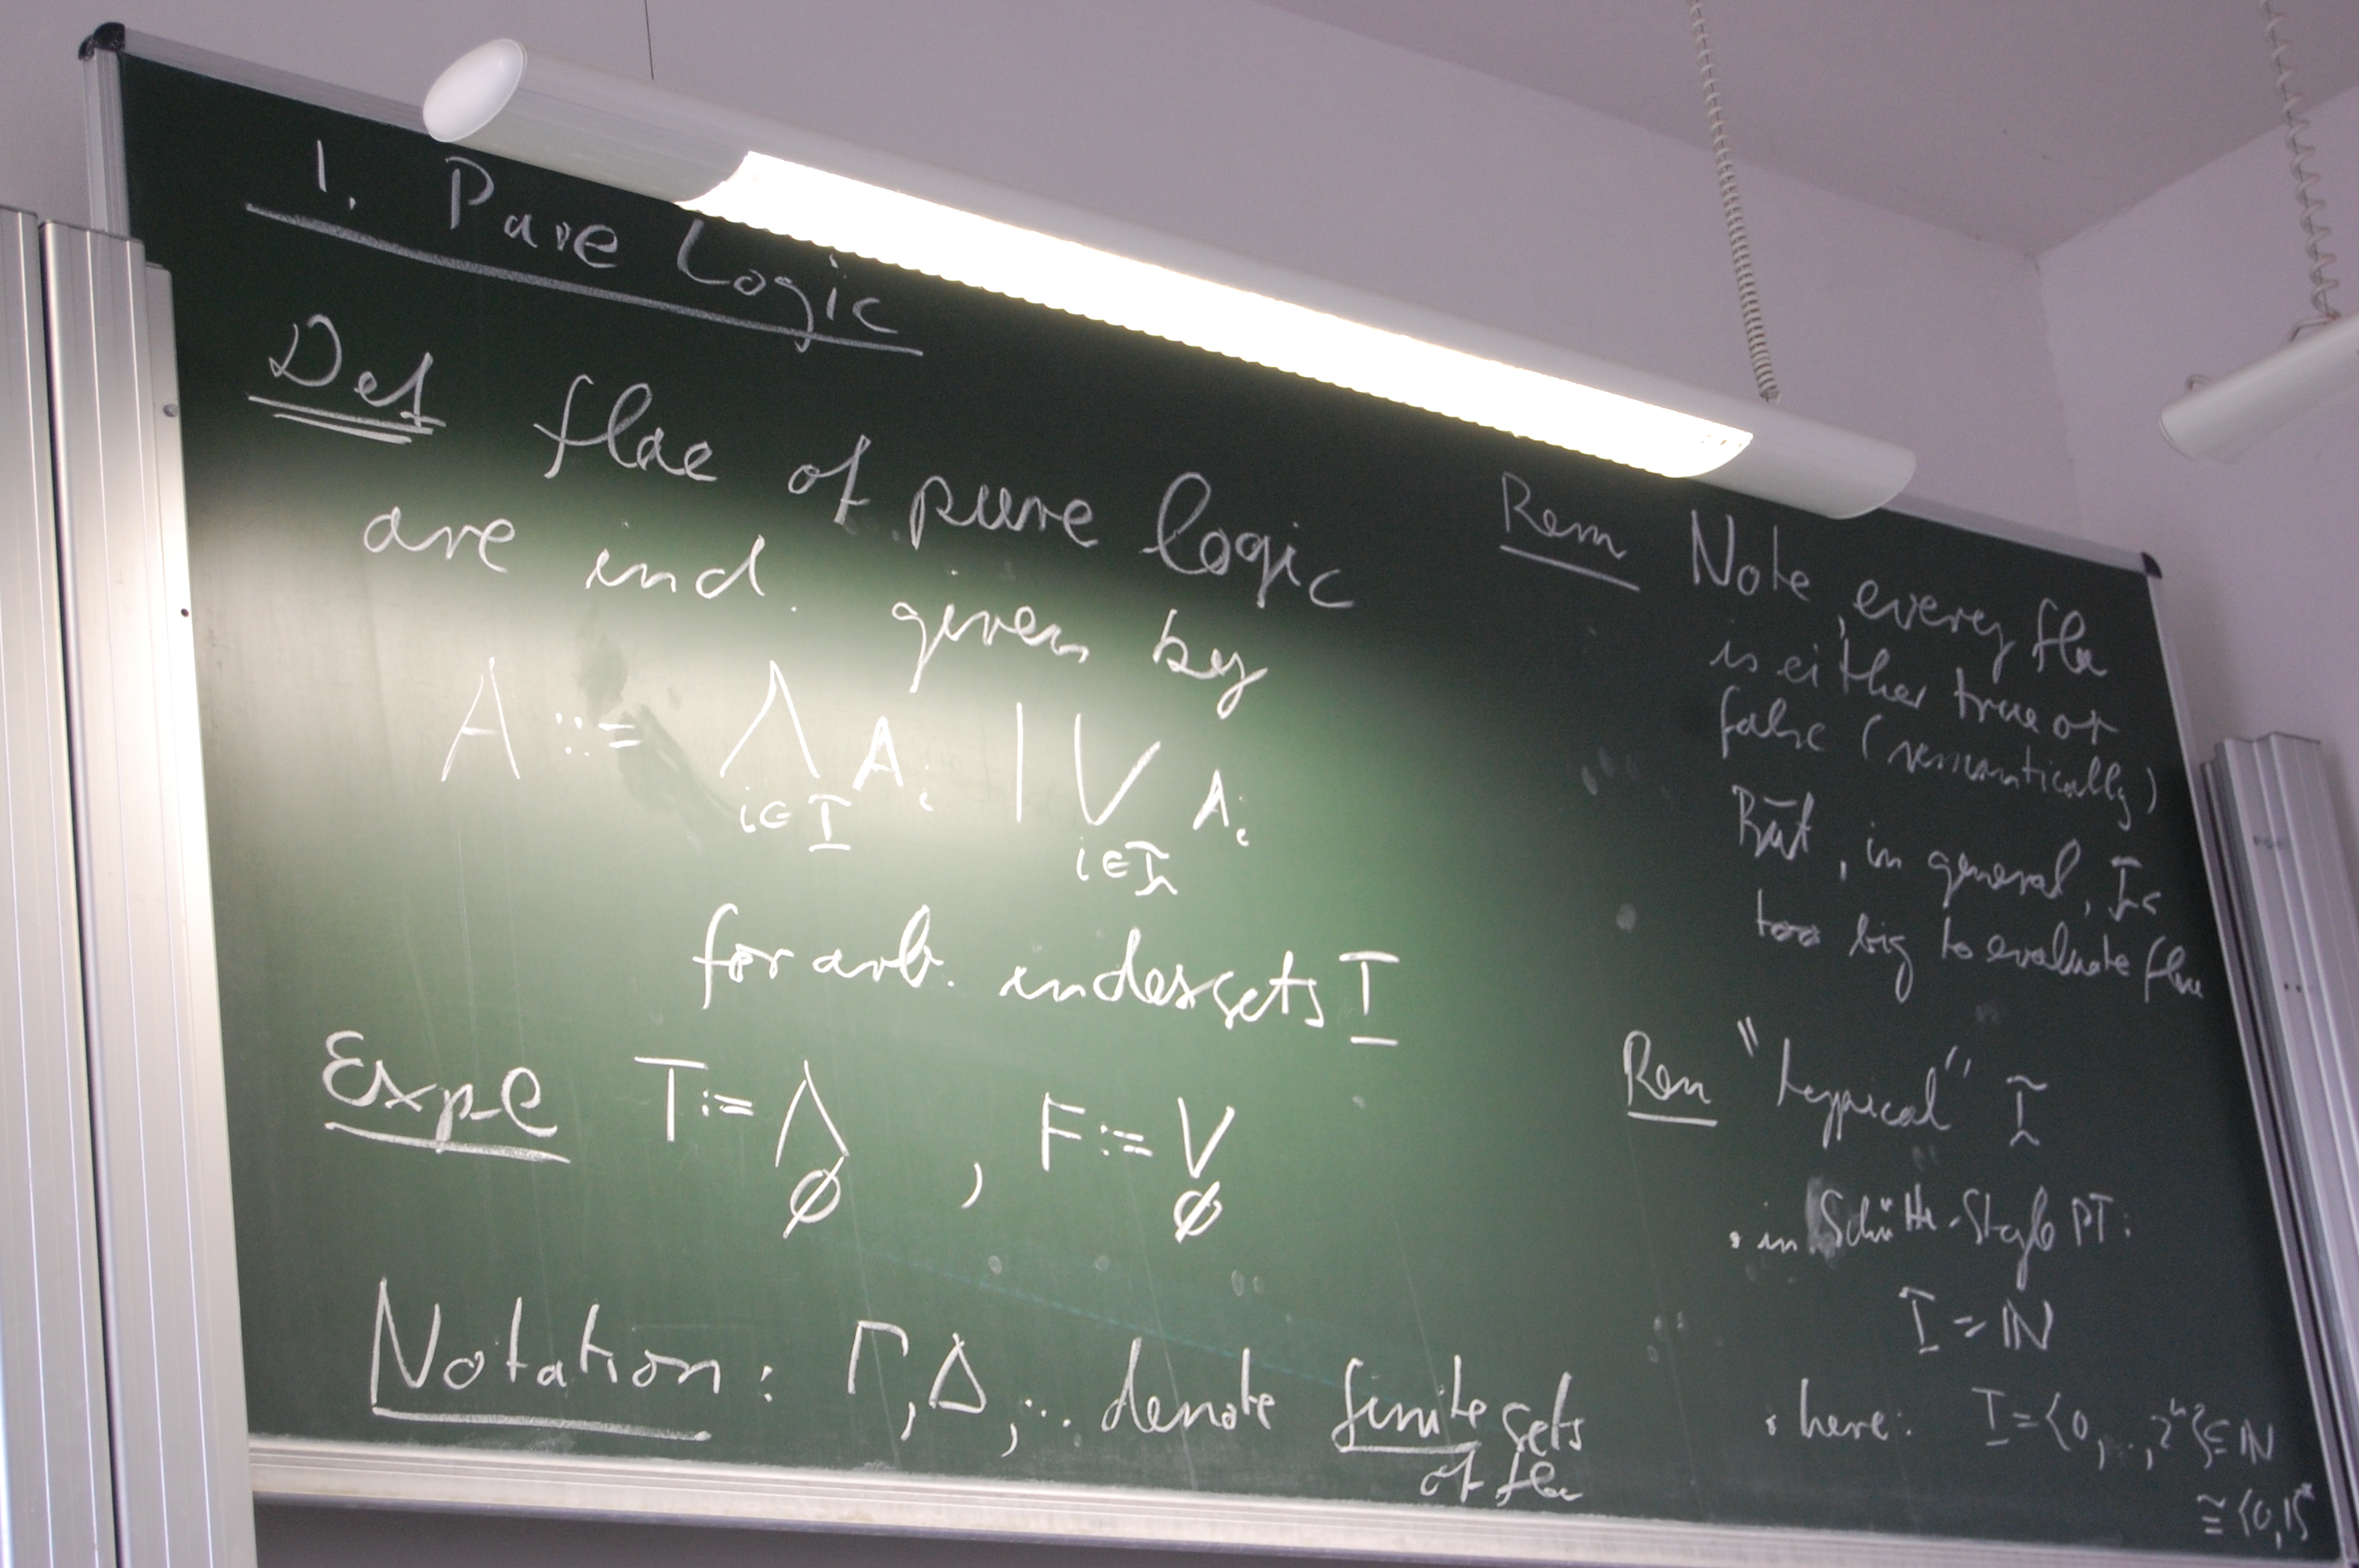 1. Pure Logic
Def flae of pure logic
are ind. given by
A ::= ⋀ A_i | ⋁ A_i
i∈I i∈I
for arb. indexsets I
Expl T := ⋀ , F := ⋁
∅ ∅
Notation: Γ, Δ, ... denote finite sets
of fla
Rem Note, every fla
is either true or
false (semantically)
But, in general, I is
too big to evaluate flae
Rem "typical" I
• in Schütte-Style PT:
I = ℕ
• here: I = {0, .., 2^n} ⊆ ℕ
≅ {0,1}